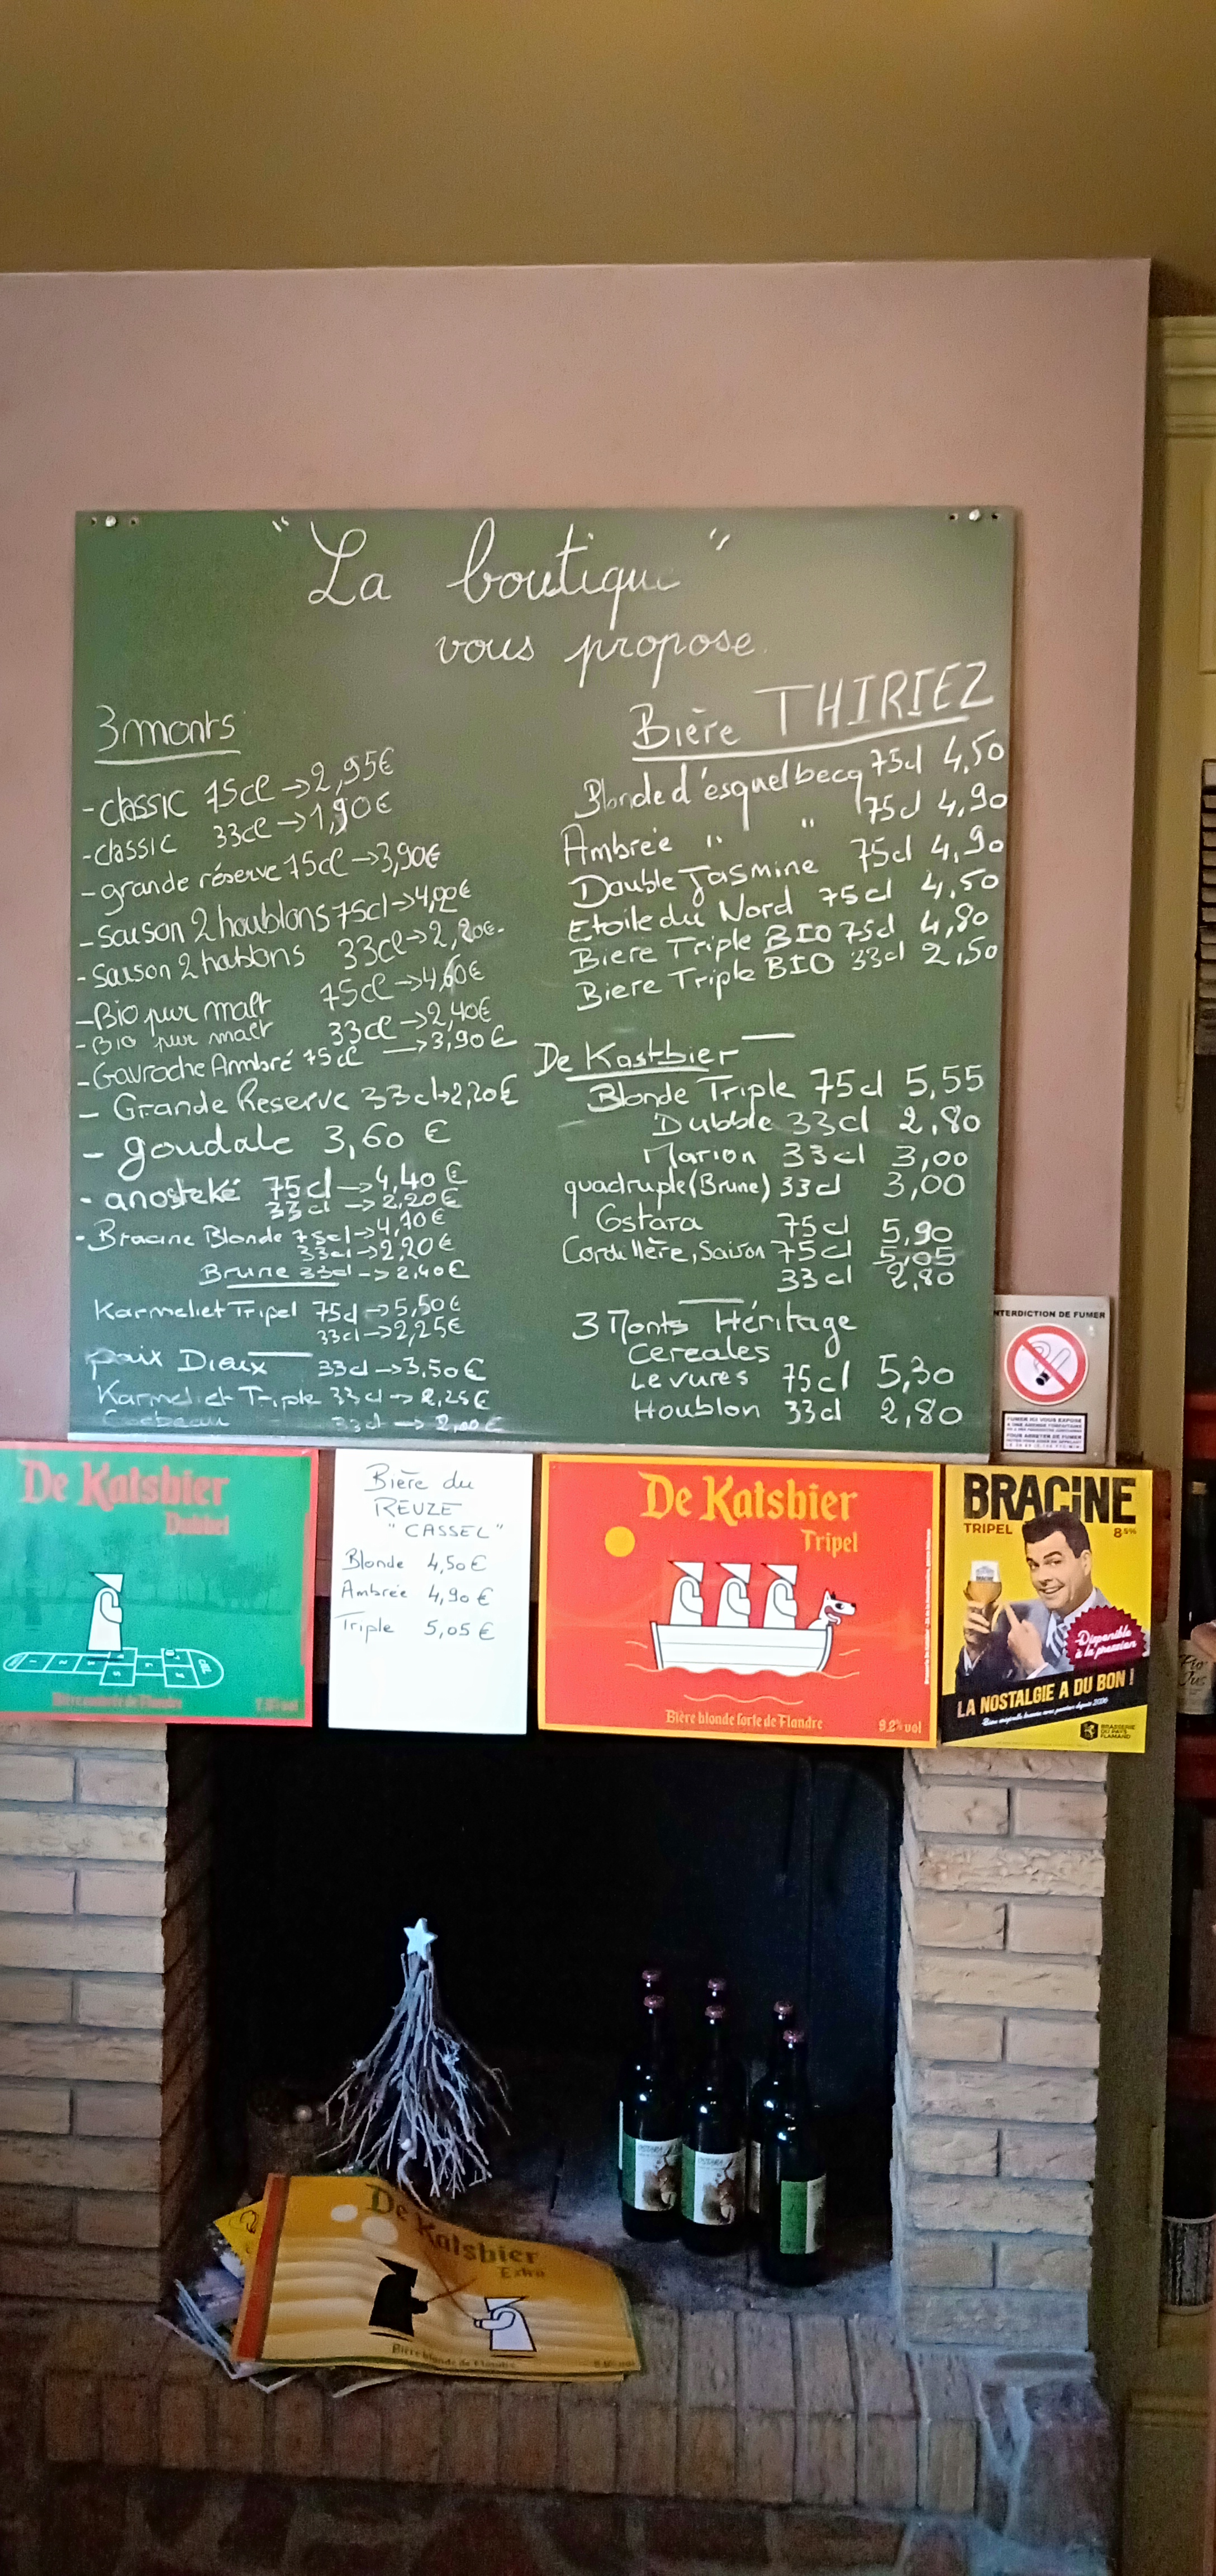 " La boutique "
vous propose
3 monts
- classic 75cl → 2,95€
- classic 33cl → 1,90€
- grande réserve 75cl → 3,90€
- Saison 2 houblons 75cl → 4,00€
- Saison 2 hablons 33cl → 2,20€
- Bio pur malt 75cl → 4,60€
- Bio pur malt 33cl → 2,40€
- Gavroche Ambré 75cl → 3,90€
- Grande Reserve 33cl → 2,20€
- goudale 3,60 €
- anosteké 75cl → 4,40€
33cl → 2,20€
- Bracine Blonde 75cl → 4,70€
33cl → 2,20€
Brune 33cl → 2,40€
Karmeliet Tripel 75cl → 5,50€
33cl → 2,25€
paix Dieux 33cl → 3,50€
Karmeliet Triple 33cl → 2,25€
Corbeau 33cl → 2,00€
Bière THIRIEZ
Blonde d'ésquelbecq 75cl 4,50
Ambrée " " 75cl 4,90
Double Jasmine 75cl 4,90
Etoile du Nord 75cl 4,50
Biere Triple BIO 75cl 4,80
Biere Triple BIO 33cl 2,50
De Kastbier
Blonde Triple 75cl 5,55
Dubble 33cl 2,80
Marion 33cl 3,00
quadruple (Brune) 33cl 3,00
Ostara 75cl 5,90
Cordillère, Saison 75cl 5,05
33cl 2,80
3 Monts Héritage
Cereales
Levures 75cl 5,30
Houblon 33cl 2,80
INTERDICTION DE FUMER
De Katsbier
Dubbel
Bière du
REUZE
"CASSEL"
Blonde 4,50€
Ambrée 4,90€
Triple 5,05€
De Katsbier
Tripel
Bière blonde forte de Flandre
9,2% vol
BRACINE
TRIPEL 8,5%
Disponible
à la pression
LA NOSTALGIE A DU BON !
BRASSERIE
DU PAYS
FLAMAND
De Katsbier
Extra
Bière blonde de Flandre